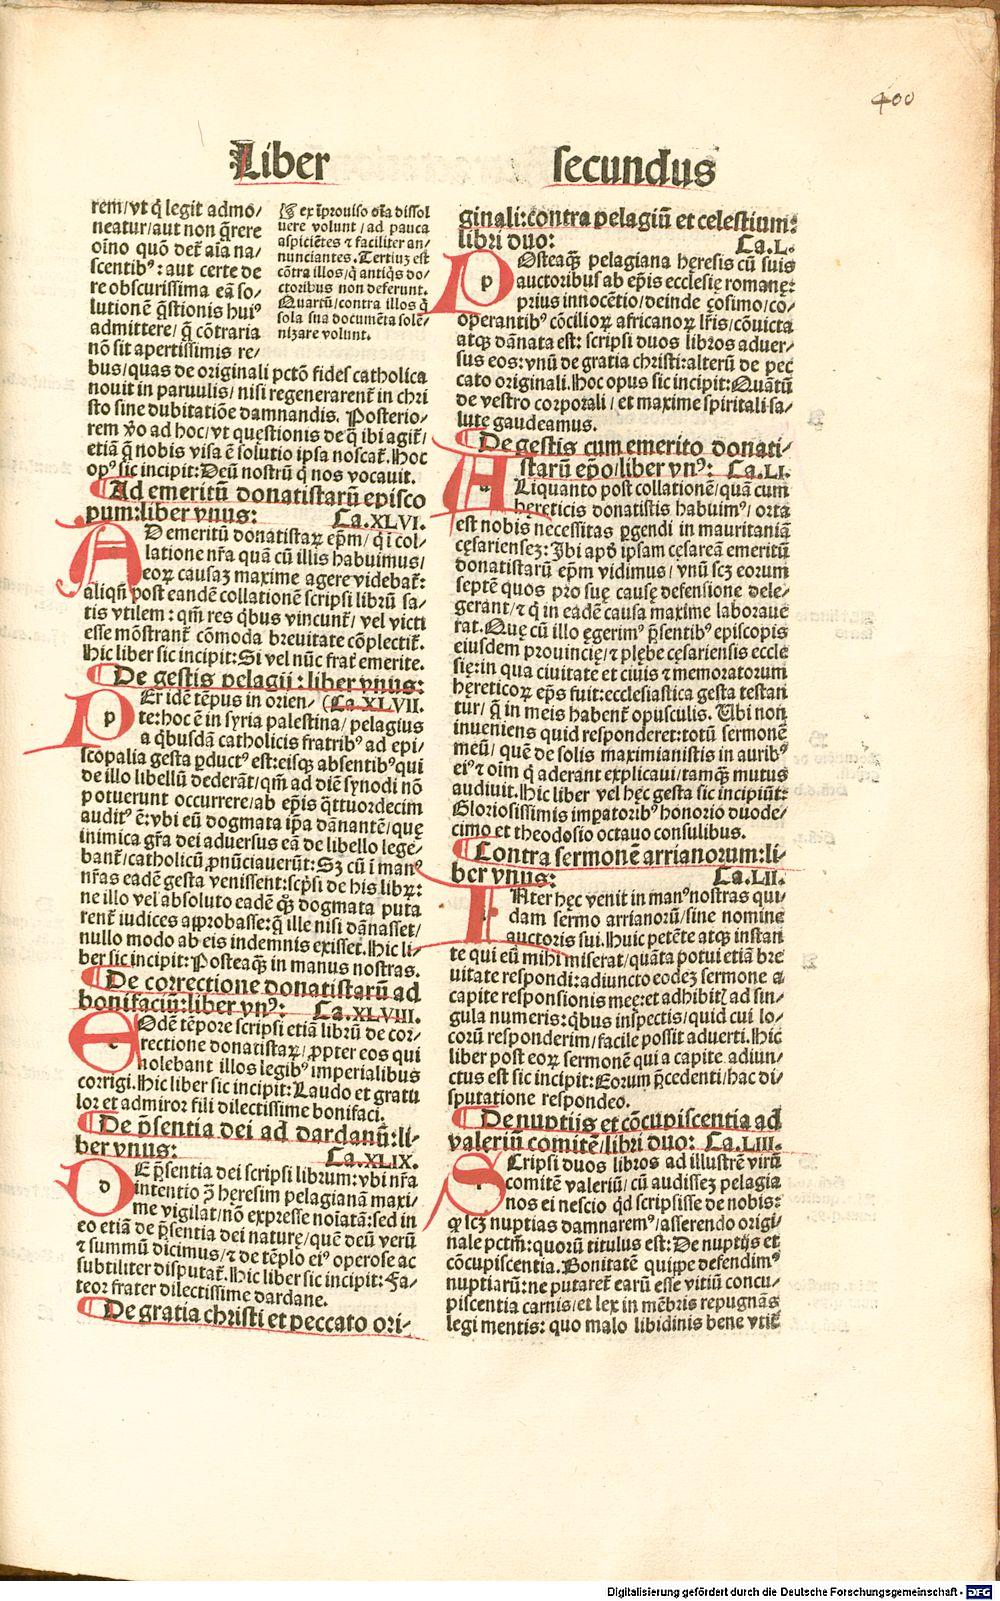 400
Liber secundus
rem/vt q̄ legit admo⸗
neatur/aut non q̄rere
oīno quō det̄ aīa na⸗
scentibꝰ: aut certe de
re obscurissima eā so⸗
lutionē q̄stionis huiꝰ
admittere/ q̄ cōtraria
nō sit apertissimis re⸗
bus/quas de originali pctō fides catholica
nouit in paruulis/ nisi regenerarent̄ in chri
sto sine dubitatiōe damnandis. Posterio⸗
rem v̄o ad hoc/vt quęstionis de q̄ ibi agit̄/
etiā q̄ nobis visa ē solutio ipsa noscat̄. Hoc
opꝰ sic incipit: Deū nostrū q̄ nos vocauit.
ex īprouiso oīa dissol
uere volunt/ad pauca
aspiciētes ⁊ faciliter an⸗
nunciantes. Tertiuȝ est
cōtra illos/q̄ antiq̄s do⸗
ctoribus non deferunt.
Quartū/contra illos q̄
sola sua documēta solē⸗
nizare volunt.
¶Ad emeritū donatistarū episco
pum:liber vnus: Ca.XLVI.
AD emeritū donatistaꝝ ep̄m/ q̄ ī col⸗
latione nr̄a quā cū illis habuimus/
eoꝝ causaȝ maxime agere videbat̄:
aliqn̄ post eandē collationē scripsi librū sa⸗
tis vtilem: qm̄ res q̄bus vincunt̄/ vel victi
esse mōstrant̄ cōmoda breuitate cōplectit̄.
Hic liber sic incipit: Si vel nūc frat̄ emerite.
¶De gestis pelagij : liber vnus:
PEr idē tēpus in orien/ (Ca.XLVII.
te: hoc ē in syria palestina/ pelagius
a q̄busdā catholicis fratribꝰ ad epi⸗
scopalia gesta ꝑductꝰ est:eisqȝ absentibꝰ qui
de illo libellū dederāt/qm̄ ad diē synodi nō
potuerunt occurrere/ab ep̄is q̄ttuordecim
auditꝰ ē: vbi eū dogmata ip̄a dānantē/quę
inimica gr̄a dei aduersus eā de libello lege⸗
bant̄/catholicū ꝓnūciauerūt: Sȝ cū ī manꝰ
nr̄as eadē gesta venissent:scp̄si de his libꝝ:
ne illo vel absoluto eadē q̄ȝ dogmata puta
rent̄ iudices approbasse:q̄ ille nisi dānasset/
nullo modo ab eis indemnis exisset. Hic li⸗
ber sic incipit: Posteaqȝ in manus nostras.
¶De correctione donatistarū ad
bonifaciū:liber vnꝰ: Ca.XLVIII.
EOdē tēpore scripsi etiā librū de cor⸗
rectione donatistaꝝ/ ꝓpter eos qui
nolebant illos legibꝰ imperialibus
corrigi. Hic liber sic incipit: Laudo et gratu
lor et admiror fili dilectissime bonifaci.
¶De p̄sentia dei ad dardanū:li⸗
ber vnus: Ca.XLIX.
DE p̄sentia dei scripsi librum: vbi nr̄a
intentio ꝯ̄ heresim pelagianā maxi⸗
me vigilat/nō expresse noīatā: sed in
eo etiā de p̄sentia dei nature/quē deū verū
⁊ summū dicimus/⁊ de tēplo eiꝰ operose ac
subtiliter disputat̄. Hic liber sic incipit: Fa⸗
teor frater dilectissime dardane.
¶De gratia christi et peccato ori⸗
ginali:contra pelagiū et celestium:
libri duo: Ca.L.
POsteaqȝ pelagiana hęresis cū suis
auctoribus ab ep̄is ecclesię romanę:
prius innocētio/deinde ȩosimo/co⸗
operantibꝰ cōcilioꝝ africanoꝝ lr̄is/cōuicta
atqȝ dānata est: scripsi duos libros aduer⸗
sus eos: vnū de gratia christi: alterū de pec
cato originali. Hoc opus sic incipit: Quātū
de vestro corporali/ et maxime spiritali sa⸗
lute gaudeamus.
¶De gestis cum emerito donati⸗
starū ep̄o/liber vnꝰ: Ca.LI.
ALiquanto post collationē/quā cum
hęreticis donatistis habuimꝰ/ orta
est nobis necessitas ꝑgendi in mauritaniā
cęsarienseȝ: Ibi apd̄ ipsam cęsareā emeritū
donatistarū ep̄m vidimus/ vnū scȝ eorum
septē quos pro suę causę defensione dele⸗
gerant/⁊ q̄ in eadē causa maxime laboraue
rat. Quę cū illo egerimꝰ p̄sentibꝰ episcopis
eiusdem prouincię/⁊ plębe cęsariensis eccle
się:in qua ciuitate et ciuis ⁊ memoratorum
hęreticoꝝ ep̄s fuit:ecclesiastica gesta testan
tur/ q̄ in meis habent̄ opusculis. Vbi non
inueniens quid responderet:totū sermonē
meū/ quē de solis maximianistis in auribꝰ
eiꝰ ⁊ oīm q̄ aderant explicaui/tamqȝ mutus
audiuit. Hic liber vel hęc gesta sic incipiūt:
Gloriosissimis imp̄atoribꝰ honorio duode⸗
cimo et theodosio octauo consulibus.
¶Contra sermonē arrianorum:li⸗
ber vnus: Ca.LII.
INter hęc venit in manꝰ nostras qui⸗
dam sermo arrianorū/sine nomine
auctoris sui. Huic petēte atqȝ instan
te qui eū mihi miserat/quāta potui etiā bre
uitate respondi:adiuncto eodeȝ sermone a
capite responsionis meę:et adhibitꝭ ad sin⸗
gula numeris: q̄bus inspectis/ quid cui lo⸗
corū responderim/facile possit aduerti. Hic
liber post eoꝝ sermonē qui a capite adiun⸗
ctus est sic incipit: Eorum p̄cedenti/hac di⸗
sputatione respondeo.
¶De nuptijs et cōcupiscentia ad
valeriū comitē/libri duo: Ca.LIII.
SCripsi duos libros ad illustrē virū
comitē valeriū/ cū audisseȝ pelagia
nos ei nescio qd̄ scripsisse de nobis:
ꝙ scȝ nuptias damnaremꝰ/asserendo origi
nale pctm̄: quorū titulus est: De nuptijs et
cōcupiscentia. Bonitatē quippe defendimꝰ
nuptiarū: ne putaret̄ earū esse vitiū concu⸗
piscentia carnis/et lex in mēbris repugnās
legi mentis: quo malo libidinis bene vtit̄
Digitalisierung gefördert durch die Deutsche Forschungsgemeinschaft - DFG